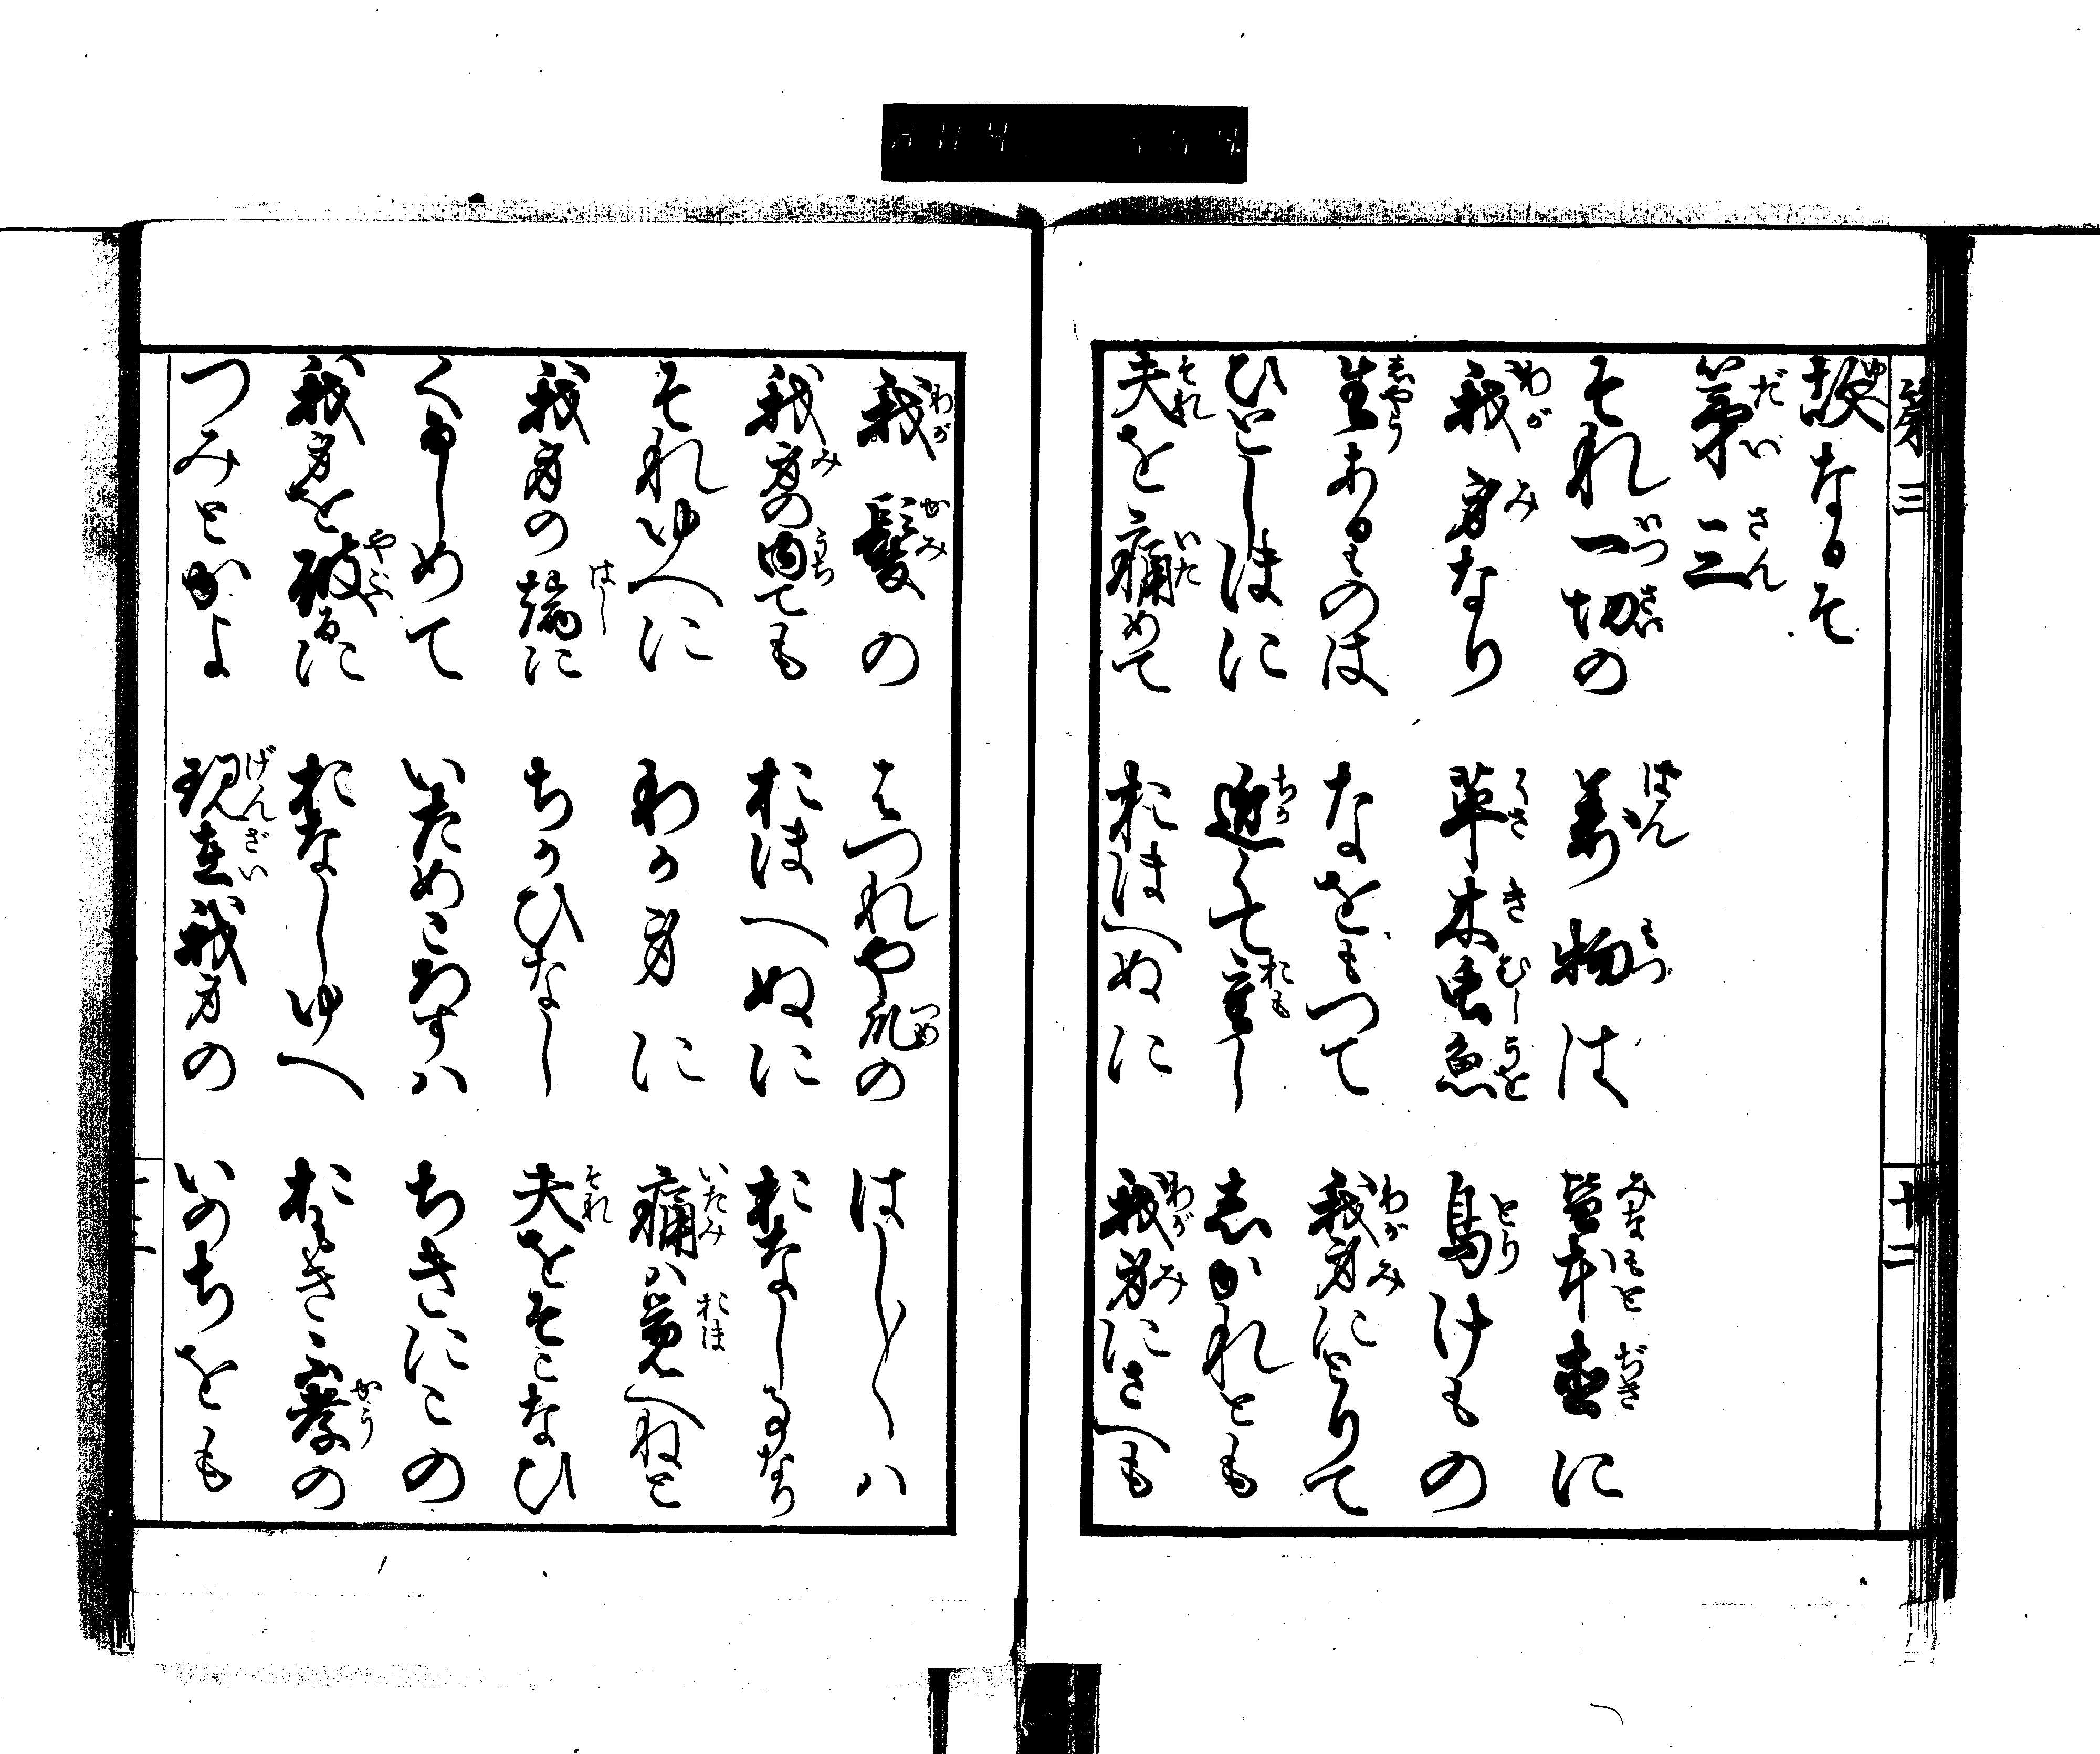 第三　十二
故なるそ
第三
それ一切の　万物は　皆本直に
我身なり　草木虫魚　鳥けもの
生あるものは　なをもつて　我身にとりて
ひとしほに　近くて重し　志かれとも
夫を痛めて　おほへぬに　我身にさへも
我髪の　はつれや爪の　はし〳〵ハ
我身の内ても　おほへぬに　おなし事なり
それゆへに　わか身に　痛ハ覚へねと
我身の端に　ちかひなし　夫をそこなひ
くるしめて　いためころすハ　ちきにこの
我身を破るに　おなしゆへ　おもき不孝の
つみとかよ　現在我身の　いのちをも